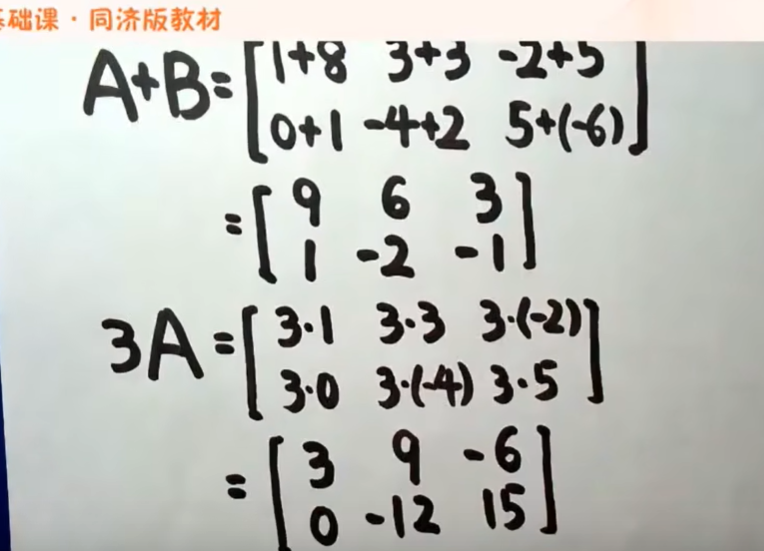 础课·同济版教材
A+B= [ 1+8 3+3 -2+5
0+1 -4+2 5+(-6) ]
= [ 9 6 3
1 -2 -1 ]
3A= [ 3·1 3·3 3·(-2)
3·0 3·(-4) 3·5 ]
= [ 3 9 -6
0 -12 15 ]